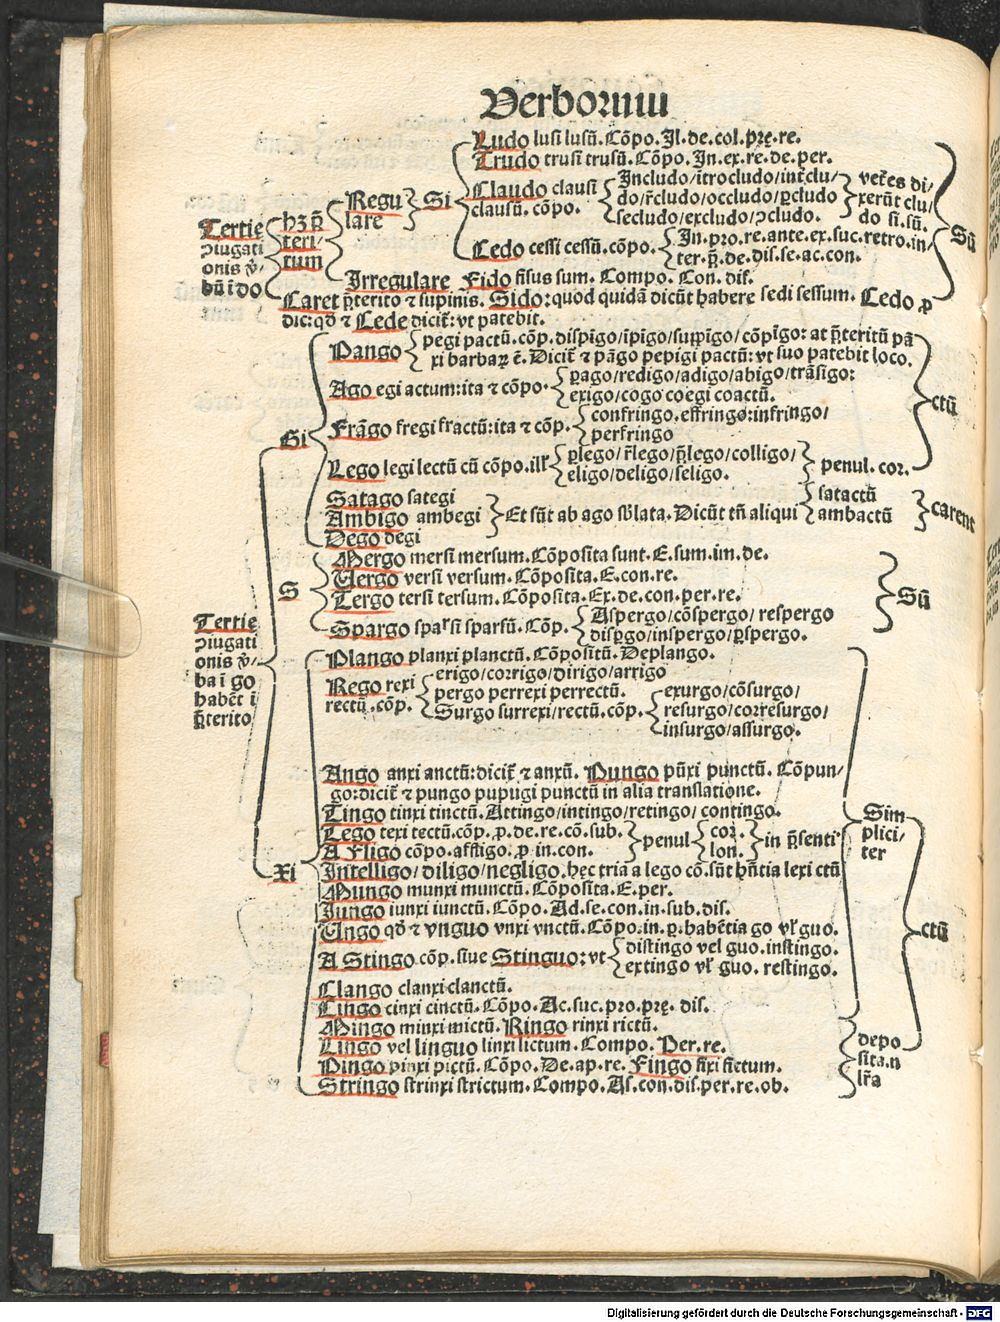 Verborum
Ludo lusi lusū. Cōpo. Il. de. col. prę. re.
Trudo trusi trusū. Cōpo. In. ex. re. de. per.
Claudo clausi clausū. cōpo.
Includo/ītrocludo/int̄clu/
do/r̄cludo/occludo/ꝑcludo
secludo/excludo/ꝯcludo.
vet̄es di/
xerūt clu/
do si. sū.
Cedo cessi cessū. cōpo.
In. pro. re. ante. ex. suc. retro. in/
ter. p̄. de. dis. se. ac. con.
Sū
Si
Regu
lare
hꝫ p̄
teri/
tum
Tertie
ꝯiugati
onis v̄/
bū ī do
Irregulare Fido fisus sum. Compo. Con. dif.
Caret p̄terito ⁊ supinis. Sido: quod quidā dicūt habere sedi sessum. Cedo ꝓ
dic: qđ ⁊ Cede dicit̄: vt patebit.
Pango
pegi pactū. cōp. dispīgo/īpīgo/suppīgo/cōpīgo: at p̄teritū pā
xi barbaꝝ ē. Dicit̄ ⁊ pāgo pepigi pactū: vt suo patebit loco.
Ago egi actum: ita ⁊ cōpo.
ꝑago/redigo/adigo/abigo/trāsigo:
exigo/cogo coegi coactū.
ctū
Gi
Frāgo fregi fractū: ita ⁊ cōp.
confringo. effringo: infringo/
perfringo
Lego legi lectū cū cōpo. ill̄
ꝑlego/r̄lego/p̄lego/colligo/
eligo/deligo/seligo.
penul. cor.
Satago sategi
Ambigo ambegi
Dego degi
Et sūt ab ago sb̄lata. Dicūt tn̄ aliqui
satactū
ambactū
carent
S
Mergo mersi mersum. Cōposita sunt. E. sum. im. de.
Vergo versi versum. Cōposita. E. con. re.
Tergo tersi tersum. Cōposita. Ex. de. con. per. re.
Spargo sparsi sparsū. Cōp.
Aspergo/cōspergo/ respergo
dispgo/inspergo/ꝑspergo.
Sū
Tertie
ꝯiugati
onis v̄/
ba ī go
habēt ī
p̄terito
Plango planxi planctū. Cōpositū. Deplango.
Rego rexi
rectū. cōp.
erigo/corrigo/dirigo/arrigo
pergo perrexi perrectū.
Surgo surrexi/rectū. cōp.
exurgo/cōsurgo/
resurgo/corresurgo/
insurgo/assurgo.
Ango anxi anctū: dicit̄ ⁊ anxū. Pungo pūxi punctū. Cōpun/
go: dicit̄ ⁊ pungo pupugi punctū in alia translatione.
Tingo tinxi tinctū. Attingo/intingo/retingo/ contingo.
Tego texi tectū. cōp. ꝓ. de. re. cō. sub.
A Fligo cōpo. affligo. ꝓ in. con.
penul
cor.
lon.
in p̄senti
Sim
plici/
ter
Xi
Intelligo/ diligo/ negligo. hęc tria a lego cō. sūt hn̄tia lexi ctū
Mungo munxi munctū. Cōposita. E. per.
Jungo iunxi iunctū. Cōpo. Ad. se. con. in. sub. dis.
Vngo qđ ⁊ vnguo vnxi vnctū. Cōpo. in. ꝑ. habētia go vl̄ guo.
ctū
A Stingo cōp. siue Stinguo: vt
distingo vel guo. instingo.
extingo vl̄ guo. restingo.
Clango clanxi clanctū.
Cingo cinxi cinctū. Cōpo. Ac. suc. pro. prę. dis.
Mingo minxi mictū. Ringo rinxi rictū.
Lingo vel linguo linxi lictum. Compo. Per. re.
Pingo pinxi pictū. Cōpo. De. ap. re. Fingo fixi fictum.
Stringo strinxi strictum. Compo. As. con. dis. per. re. ob.
depo
sita. n
lr̄a
Digitalisierung gefördert durch die Deutsche Forschungsgemeinschaft - DFG